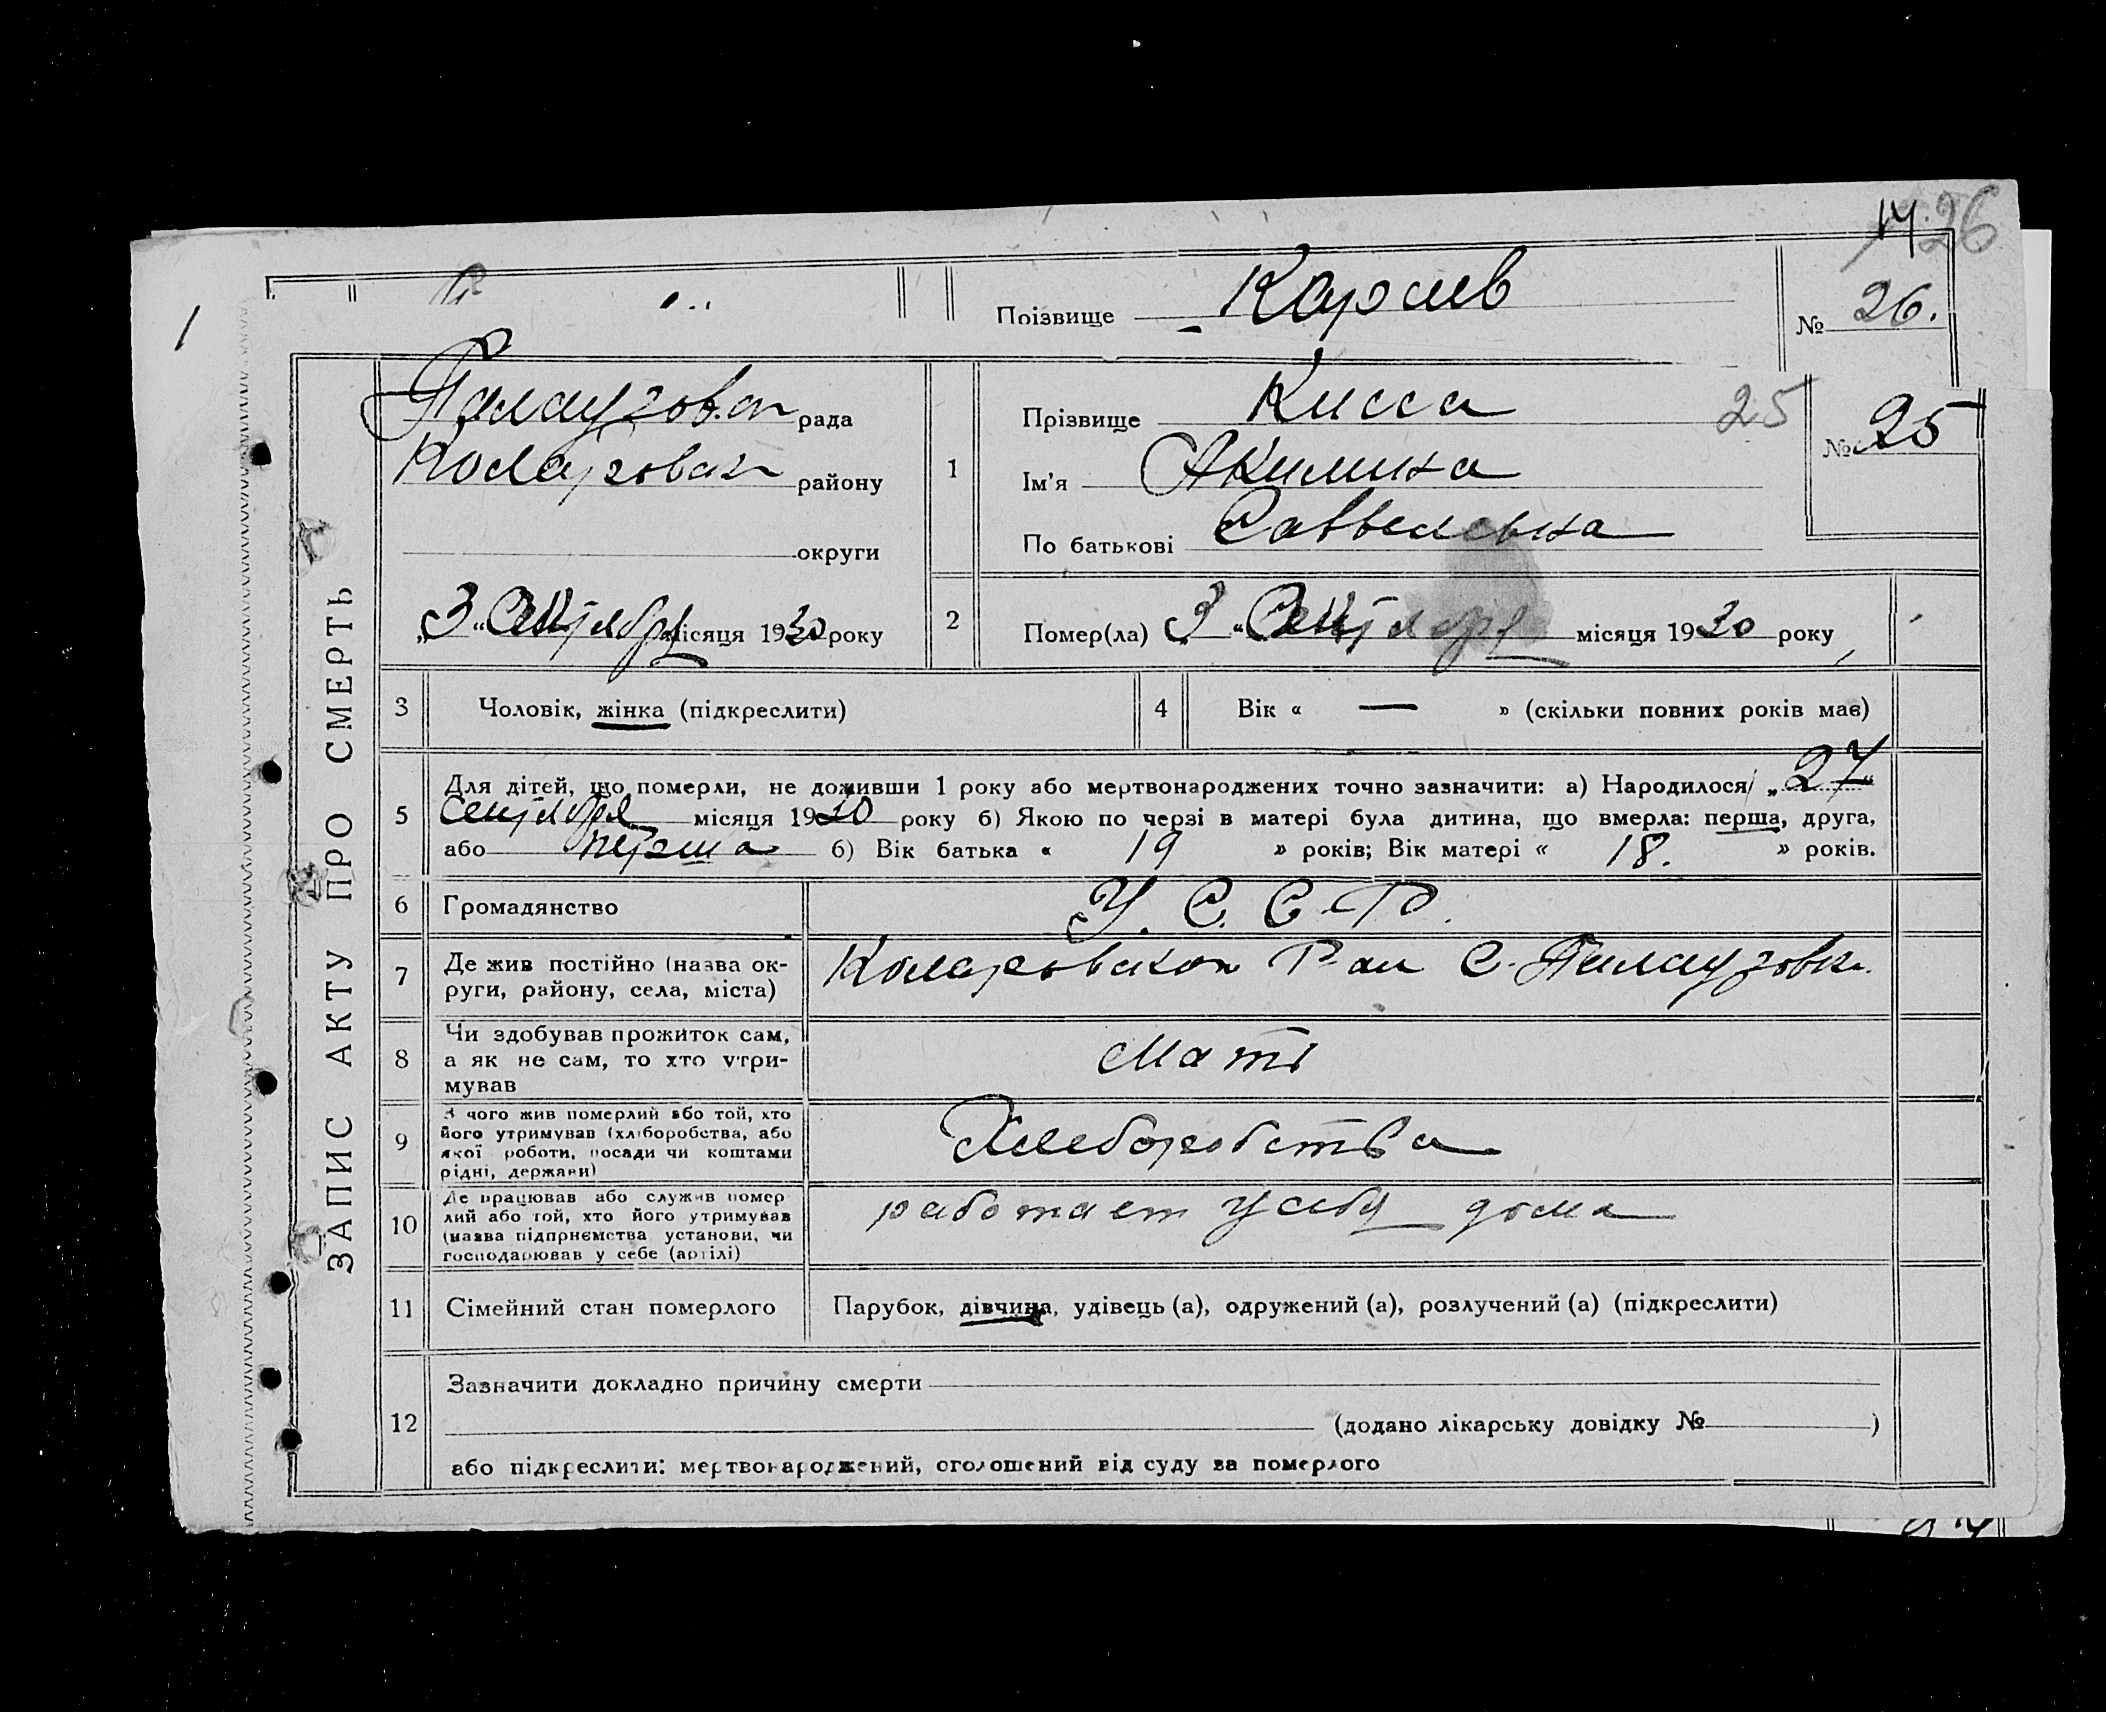 14 26
1
Прізвище Карлев
№ 26.
ЗАПИС АКТУ ПРО СМЕРТЬ
Палаузовск рада
Коларовск району
округи
„3“ Сентября місяця 1930 року
1
Прізвище Кисса
25
№ 25
Ім'я Акилина
По батькові Саввельевна
2
Помер(ла) „3“ Сентября місяця 1930 року
3 Чоловік, жінка (підкреслити)
4 Вік « — » (скільки повних років має)
5
Для дітей, що померли, не доживши 1 року або мертвонароджених точно зазначити: а) Народилося „27“
Сентября місяця 1930 року б) Якою по черзі в матері була дитина, що вмерла: перша, друга,
або перша б) Вік батька « 19 » років; Вік матері « 18. » років.
6 Громадянство У.С.С.Р.
7 Де жив постійно (назва ок-
руги, району, села, міста)
Коларовскон Р-ан С. Палаузовк.
8
Чи здобував прожиток сам,
а як не сам, то хто утри-
мував
Мать
9
З чого жив померлий або той, хто
його утримував (хліборобства, або
якої роботи, посади чи коштами
рідні, держави)
Хлеборобства
10
Де працював або служив помер
лий або той, хто його утримував
(назва підприємства установи, чи
господарював у себе (артілі)
работает у себя дома
11 Сімейний стан померлого
Парубок, дівчина, удівець (а), одружений (а), розлучений (а) (підкреслити)
12
Зазначити докладно причину смерти
(додано лікарську довідку № )
або підкреслити: мертвонароджений, оголошений від суду за померлого